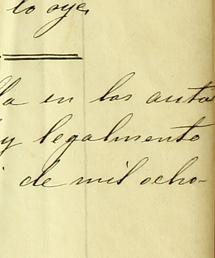 lo oye,
lla en los auto
y legalmente
de mil ocho-